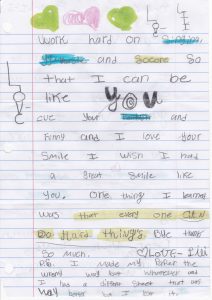 Work hard on
and soccer so
that I can be
like you
cve Your and
Funny and I love your
Smile I wish I had
a great smile like
You. One thing I learned
was that every one CAN
Do Hard things. Bye
So much. LOVE- Lili
P.S. I made my Paper the
wrong wad but whatever and
I has a different sheet that was
way better
LOVE